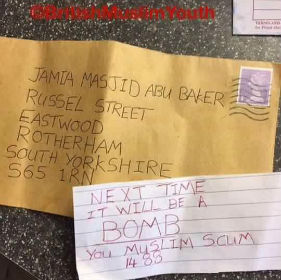 ©BritishMuslimYouth
JAMIA MASJID ABU BAKER
RUSSEL STREET
EASTWOOD
ROTHERHAM
SOUTH YORKSHIRE
S65 1RN
NEXT TIME
IT WILL BE A
BOMB
YOU MUSLIM SCUM
1488